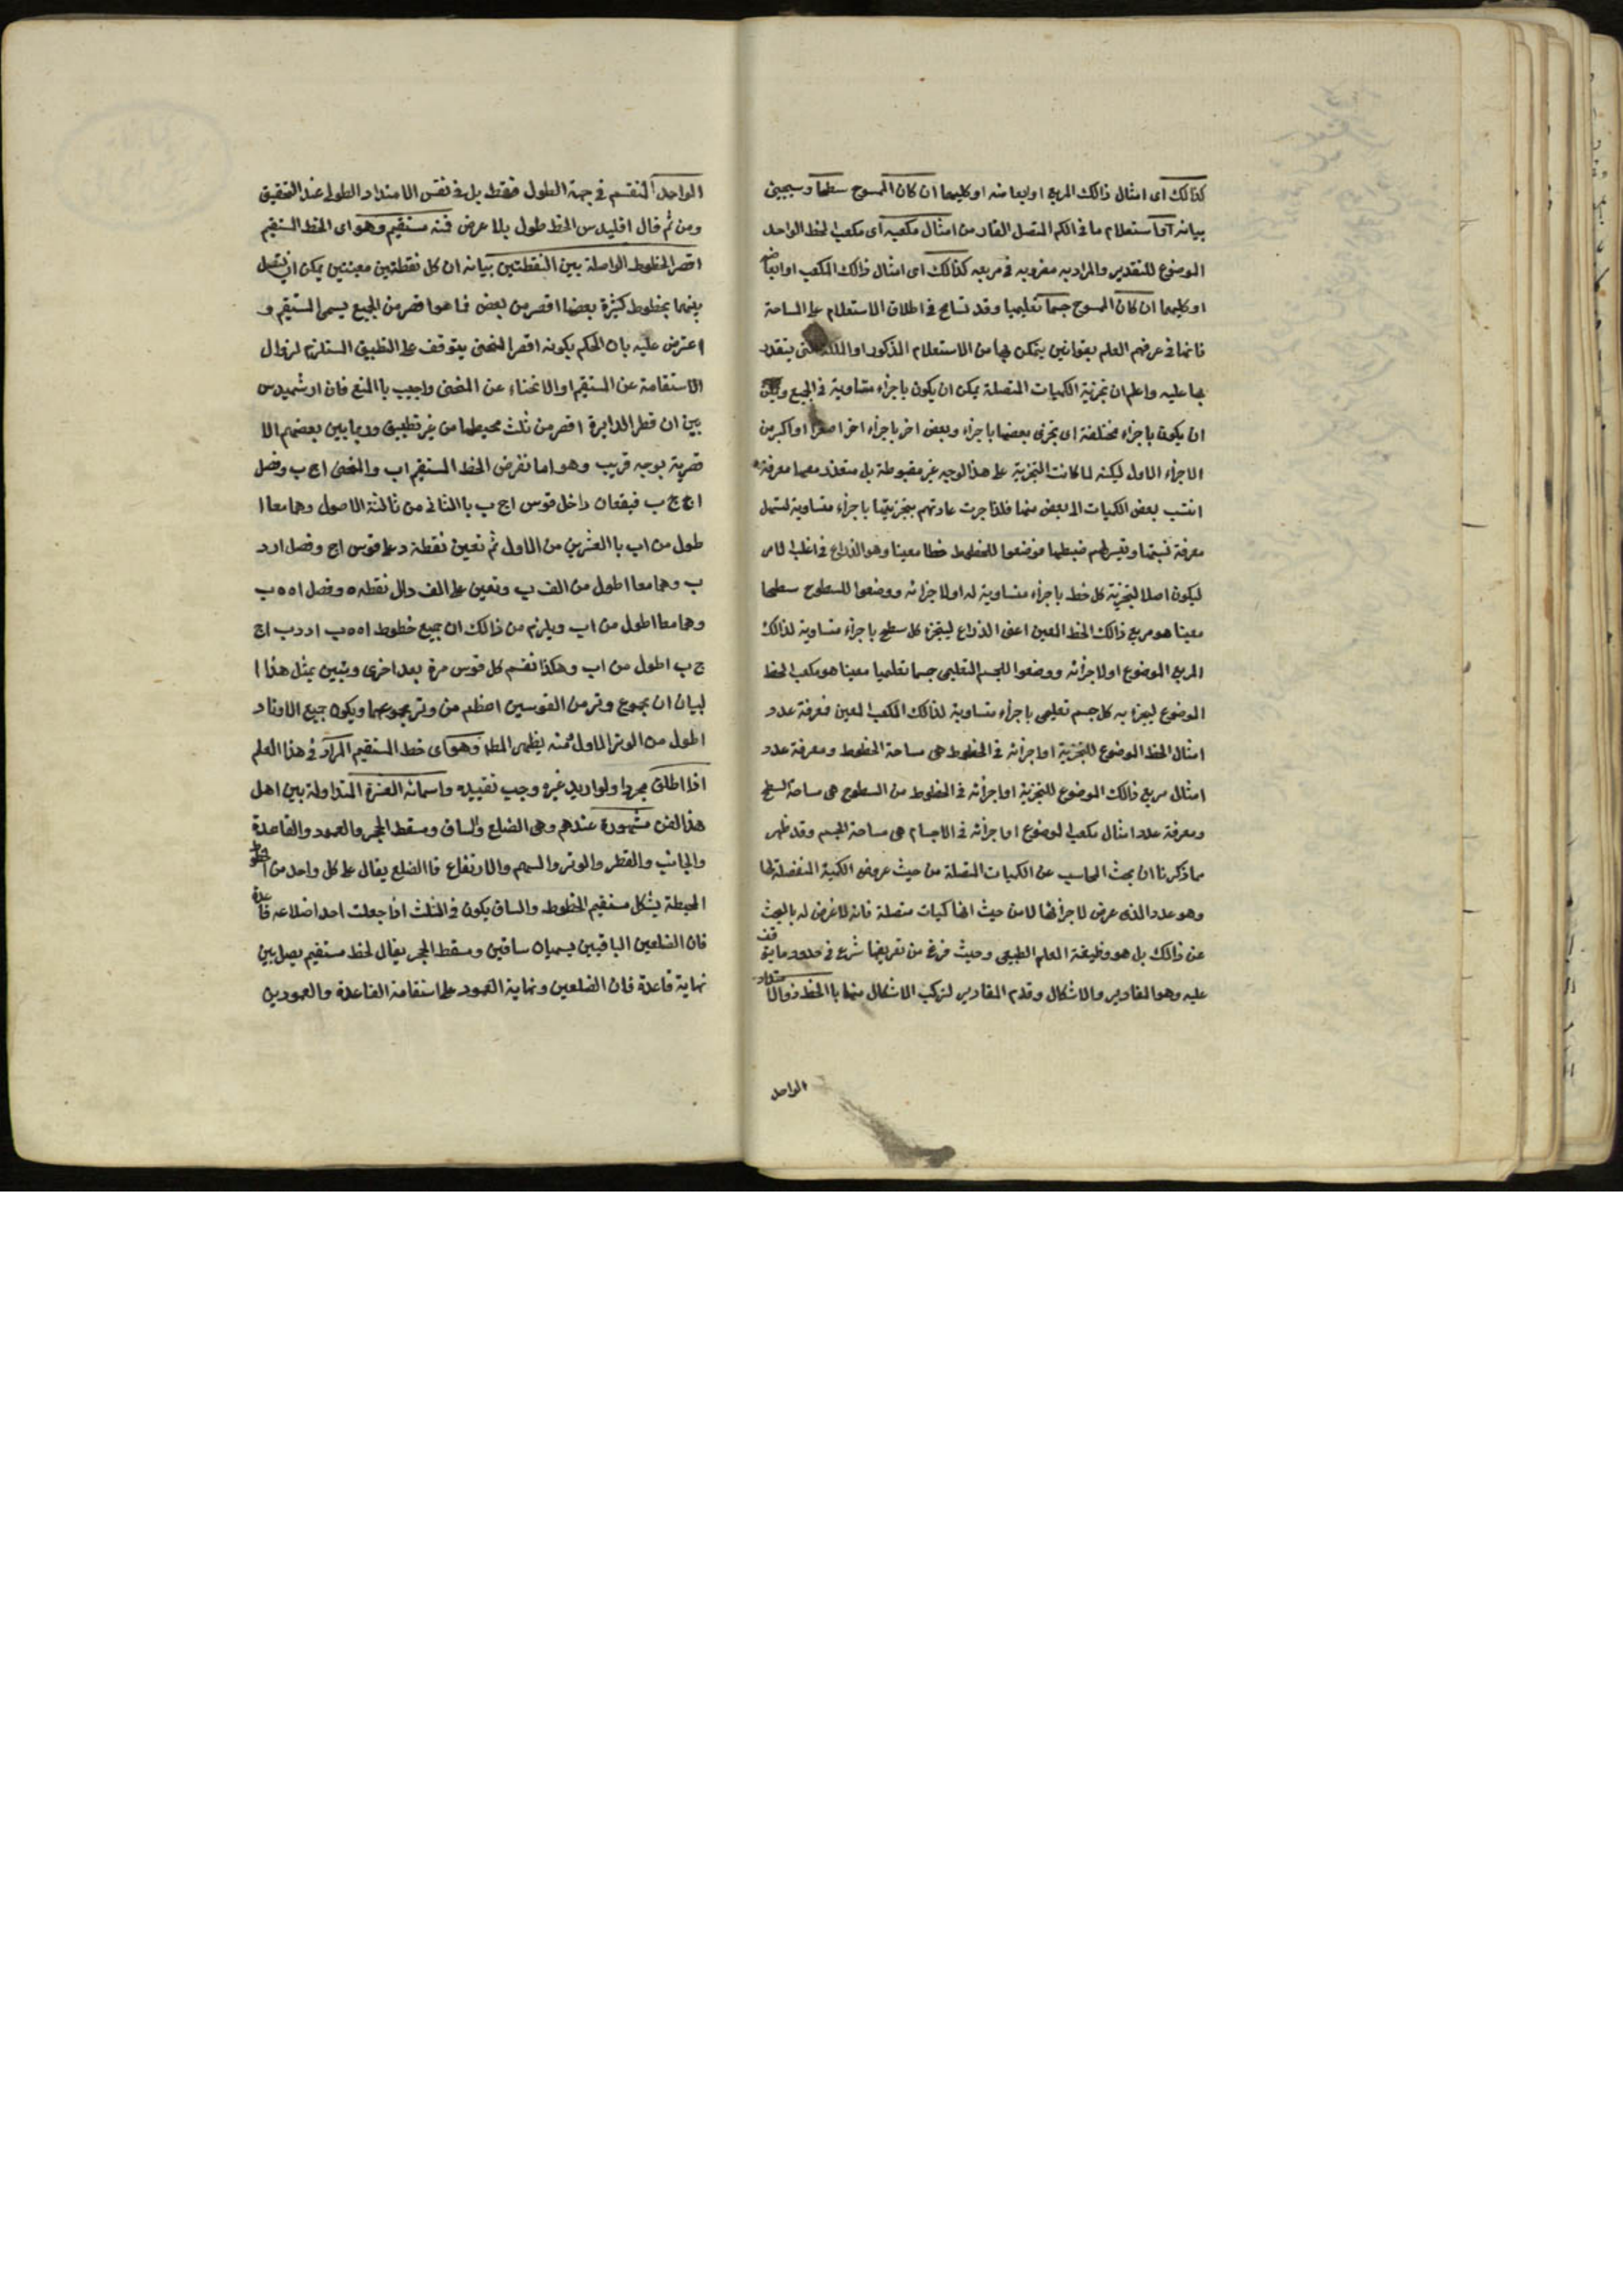 كذالك اى امثال ذالك المربع او ابعاضه او كليهما ان كان الممسوح سطحا وسيجيئ
بيانه او استعلام ما فى الكم المتصل القار من امثال مكعبه اى مكعب الخط الواحد
الموضوع للتقدير والمراد به مضروبه فى مربعه كذالك اى امثال ذالك المكعب او ابعاضه
او كليهما ان كان الممسوح جسما تعليميا وقد تسامح فى اطلاق الاستعلام على المساحة
فانها فى عرفهم العلم بقوانين يتمكن بها من الاستعلام المذكور او الملكة التى يقتدر
بها عليه واعلم ان تجزية الكميات المتصلة يمكن ان يكون باجزاء متساوية فى الجميع ويمكن
ان يكون باجزاء مختلفة اى يجزى بعضها باجزاء وبعض اخر باجزاء اخر اصغر او اكبر من
الاجزاء الاول ليكنه لما كانت التجزية على هذالوجه غير مضبوطة بل متعذر معها معرفة
انتسب بعض الكميات الى بعض منها فلذا جرت عادتهم بتجزيتها باجزاء متساوية لتسهل
معرفة نسبتها ويتيسر لهم ضبطها فوضعوا للخطوط خطا معينا وهو الذراع فى اغلب الامر
ليكون اصلا لتجزية كل خط باجزاء متساوية له او لاجزائه ووضعوا للسطوح سطحا
معينا هو مربع ذالك الخط المعين اعنى الذراع ليتجزء كل سطح باجزاء متساوية لذالك
المربع الموضوع او لاجزائه ووضعوا للجسم التعليمى جسما تعليميا معينا هو مكعب الخط
الموضوع ليجزء به كل جسم تعليمى باجزاء متساوية لذالك المكعب المعين فمعرفة عدد
امثال الخط الموضوع للتجزية او اجزائه فى الخطوط هى مساحة الخطوط ومعرفة عدد
امثال مربع ذالك الموضوع للتجزية او اجزائه فى الخطوط من السطوح هى مساحة السطح
ومعرفة عدد امثال مكعب الموضوع او اجزائه فى الاجسام هى مساحة الجسم وقد ظهر
مما ذكرنا ان بحث المحاسب عن الكميات المتصلة من حيث عروض الكمية المنفصلة لها
وهو عدد الذى عرض لاجزائها لا من حيث انها كميات متصلة فانه لا غرض له بالبحث
عن ذالك بل هو وظيفة العلم الطبيعى وحيث فرغ من تعريفها شرع فى حدود ما يتوقف
عليه وهو المقادير والاشكال وقدم المقادير لتركب الاشكال منها با الخط ذو الامتداد
الواحد
الواحد المنقسم فى جهة الطول فقط بل فى نفس الامتداد الطولى عند التحقيق
ومن ثم قال اقليدس الخط طول بلا عرض فمنه مستقيم وهو اى الخط المستقيم
اقصر الخطوط الواصلة بين النقطتين بيانه ان كل نقطتين معينتين يمكن ان يتصل
بينهما بخطوط كثيرة بعضها اقصر من بعض فما هو اقصر من الجميع يسمى المستقيم و
اعترض عليه بان الحكم بكونه اقصر المنحنى يتوقف على التطبيق المستلزم لزوال
الاستقامة عن المستقيم او الانحناء عن المنحنى واجيب با المنع فان ارشميدس
بين ان قطر الدايرة اقصر من ثلث محيطها من غير تطبيق وربما يبين بعضهم الا
قصرية بوجه قريب وهو اما نفرض الخط المستقيم اب والمنحنى اج ب ونصل
اج ج ب فيقعان داخل قوس اج ب با الثانى من ثالثة الاصول وهما معا ا
طول من اب با العشرين من الاول ثم نعين نقطة د على قوس اج ونصل ا د د
ب وهما معا اطول من الف ب ونعين على الف دال نقطه ه ونصل ا ه ه ب
وهما معا اطول من اب ويلزم من ذالك ان جميع خطوط ا ه ه ب ا د د ب اج
ج ب اطول من اب وهكذا نقسم كل قوس مرة بعد اخرى ونبين بمثل هذا ا
لبيان ان مجموع وتر من القوسين اعظم من وتر مجموعهما ويكون جميع الاوتار
اطول من الوتر الاول فمنه يظهر المط وهو اى خط المستقيم المراد فى هذا العلم
اذا اطلق مجردا ولو اريد غيره وجب تقييده واسمائه العشرة المتداولة بين اهل
هذالفن مشهورة عندهم وهى الضلع والساق ومسقط الحجر والعمود والقاعدة
والجانب والقطر والوتر والسهم والارتفاع فا الضلع يقال على كل واحد من الخطوط
المحيطة بشكل مستقيم الخطوط والساق يكون فى المثلث اذا جعلت احد اضلاعه قاعدة
فان الضلعين الباقيين يسميان ساقين ومسقط الحجر يقال لخط مستقيم يصل بين
نهاية قاعدة فان الضلعين ونهاية العمود على استقامة القاعدة والعمودين